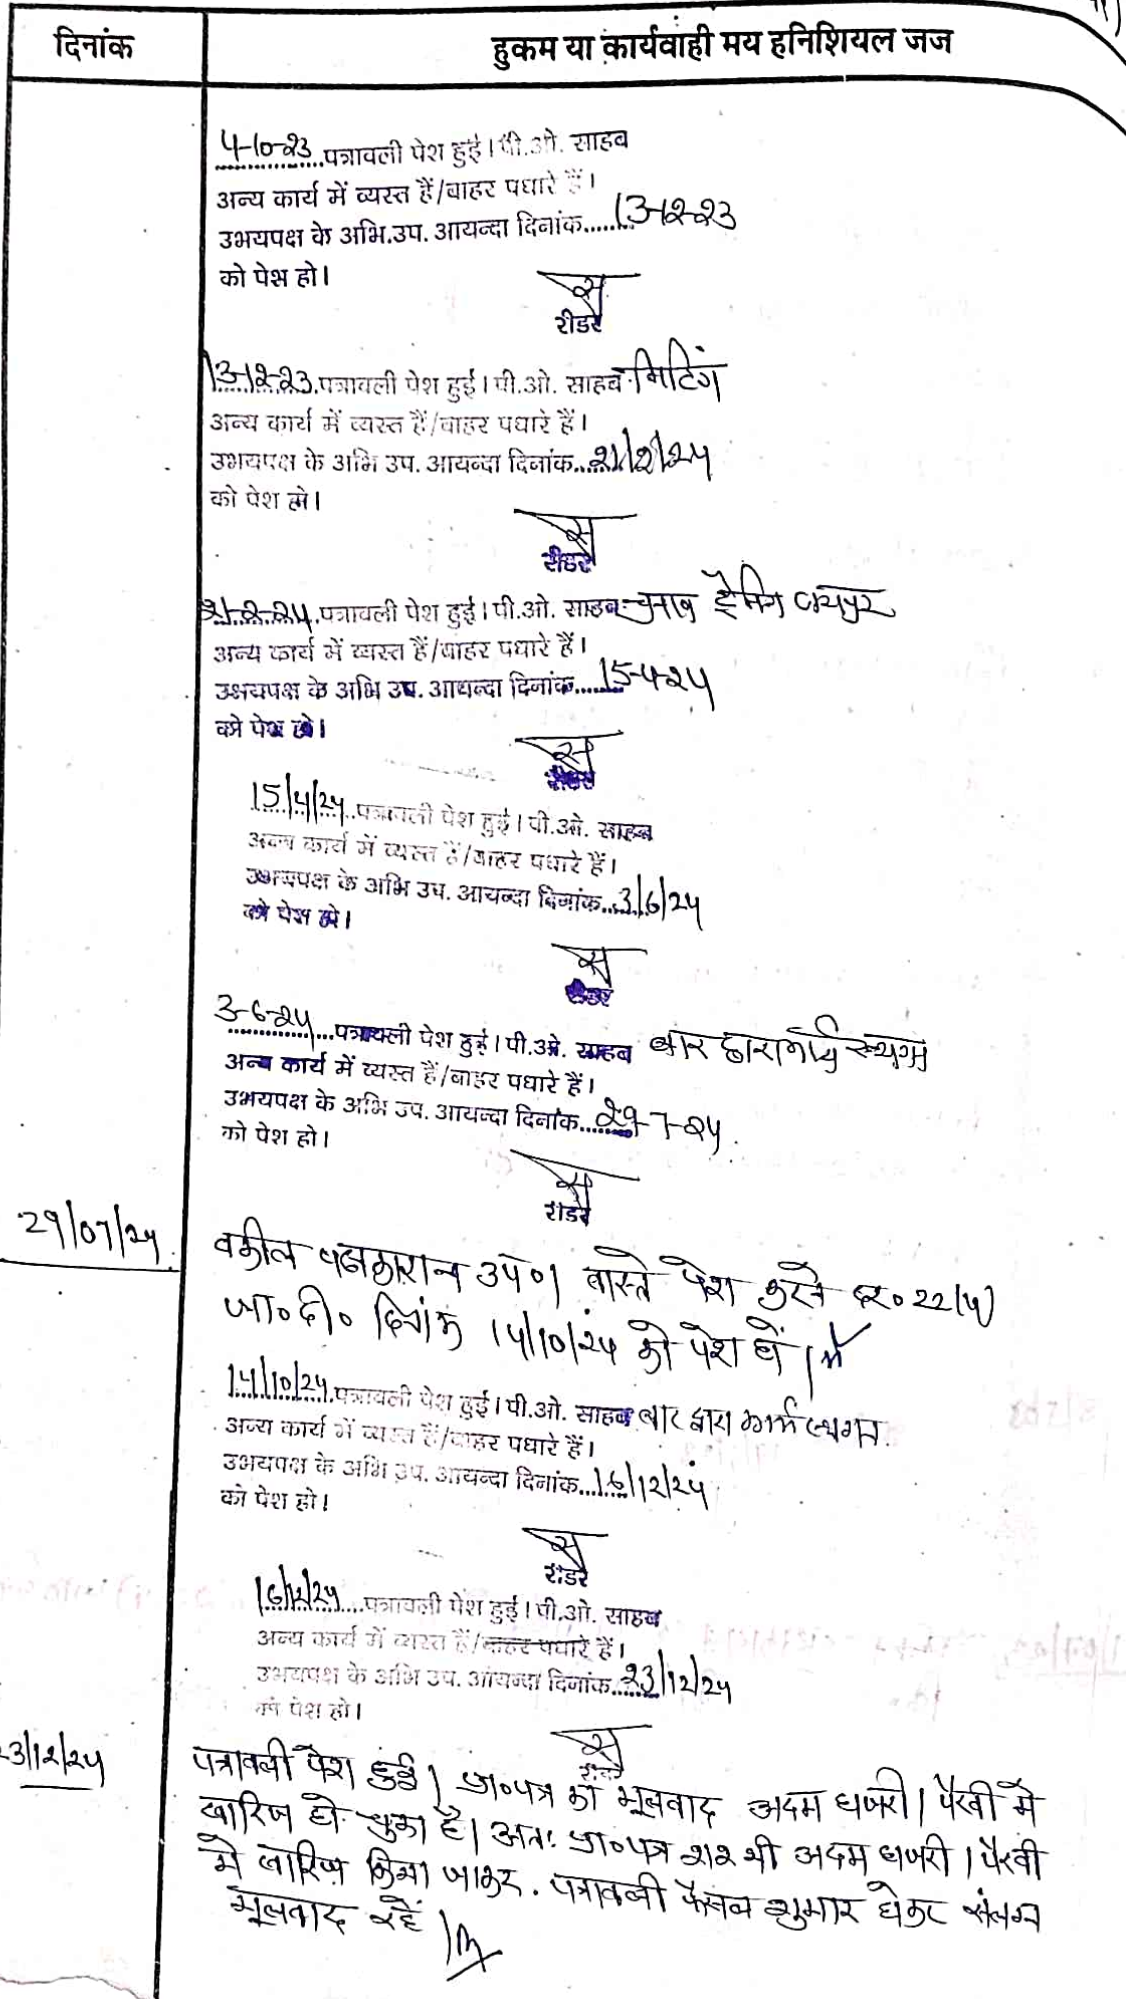 दिनांक
हुकम या कार्यवाही मय हनिशियल जज
4-10-23 पत्रावली पेश हुई। पी.ओ. साहब
अन्य कार्य में व्यस्त हैं/बाहर पधारे हैं।
उभयपक्ष के अभि.उप. आयन्दा दिनांक.......13-12-23
को पेश हो।
रीडर
13-12-23 पत्रावली पेश हुई। पी.ओ. साहब मिटिंग
अन्य कार्य में व्यस्त हैं/बाहर पधारे हैं।
उभयपक्ष के अभि उप. आयन्दा दिनांक...21/2/24
को पेश हो।
रीडर
21-2-24 पत्रावली पेश हुई। पी.ओ. साहब चुनाव ट्रैनिंग जयपुर
अन्य कार्य में व्यस्त हैं/बाहर पधारे हैं।
उभयपक्ष के अभि उप. आयन्दा दिनांक.......15-4-24
को पेश हो।
रीडर
15/4/24 पत्रावली पेश हुई। पी.ओ. साहब
अन्य कार्य में व्यस्त हैं/बाहर पधारे हैं।
उभयपक्ष के अभि उप. आयन्दा दिनांक...3/6/24
को पेश हो।
रीडर
3-6-24 पत्रावली पेश हुई। पी.ओ. साहब बार द्वारा कार्य स्थगन
अन्य कार्य में व्यस्त हैं/बाहर पधारे हैं।
उभयपक्ष के अभि उप. आयन्दा दिनांक.......29-7-24
को पेश हो।
रीडर
29/07/24 वकील पक्षकारान उप०। वास्ते पेश करने दर० 22(4)
जा०दी० दिनांक 14/10/24 को पेश हों।
14/10/24 पत्रावली पेश हुई। पी.ओ. साहब बार द्वारा कार्य स्थगन
अन्य कार्य में व्यस्त हैं/बाहर पधारे हैं।
उभयपक्ष के अभि उप. आयन्दा दिनांक...16/12/24
को पेश हो।
रीडर
16/12/24 पत्रावली पेश हुई। पी.ओ. साहब
अन्य कार्य में व्यस्त हैं/बाहर पधारे हैं।
उभयपक्ष के अभि उप. आयन्दा दिनांक...23/12/24
को पेश हो।
रीडर
23/12/24 पत्रावली पेश हुई। प्रा०पत्र का मूलवाद अदम हाजरी। पैरवी में
खारिज हो चुका है। अतः प्रा०पत्र 212 भी अदम हाजरी। पैरवी
में खारिज किया जाकर. पत्रावली फैसल शुमार होकर संलग्न
मूलवाद रहें।